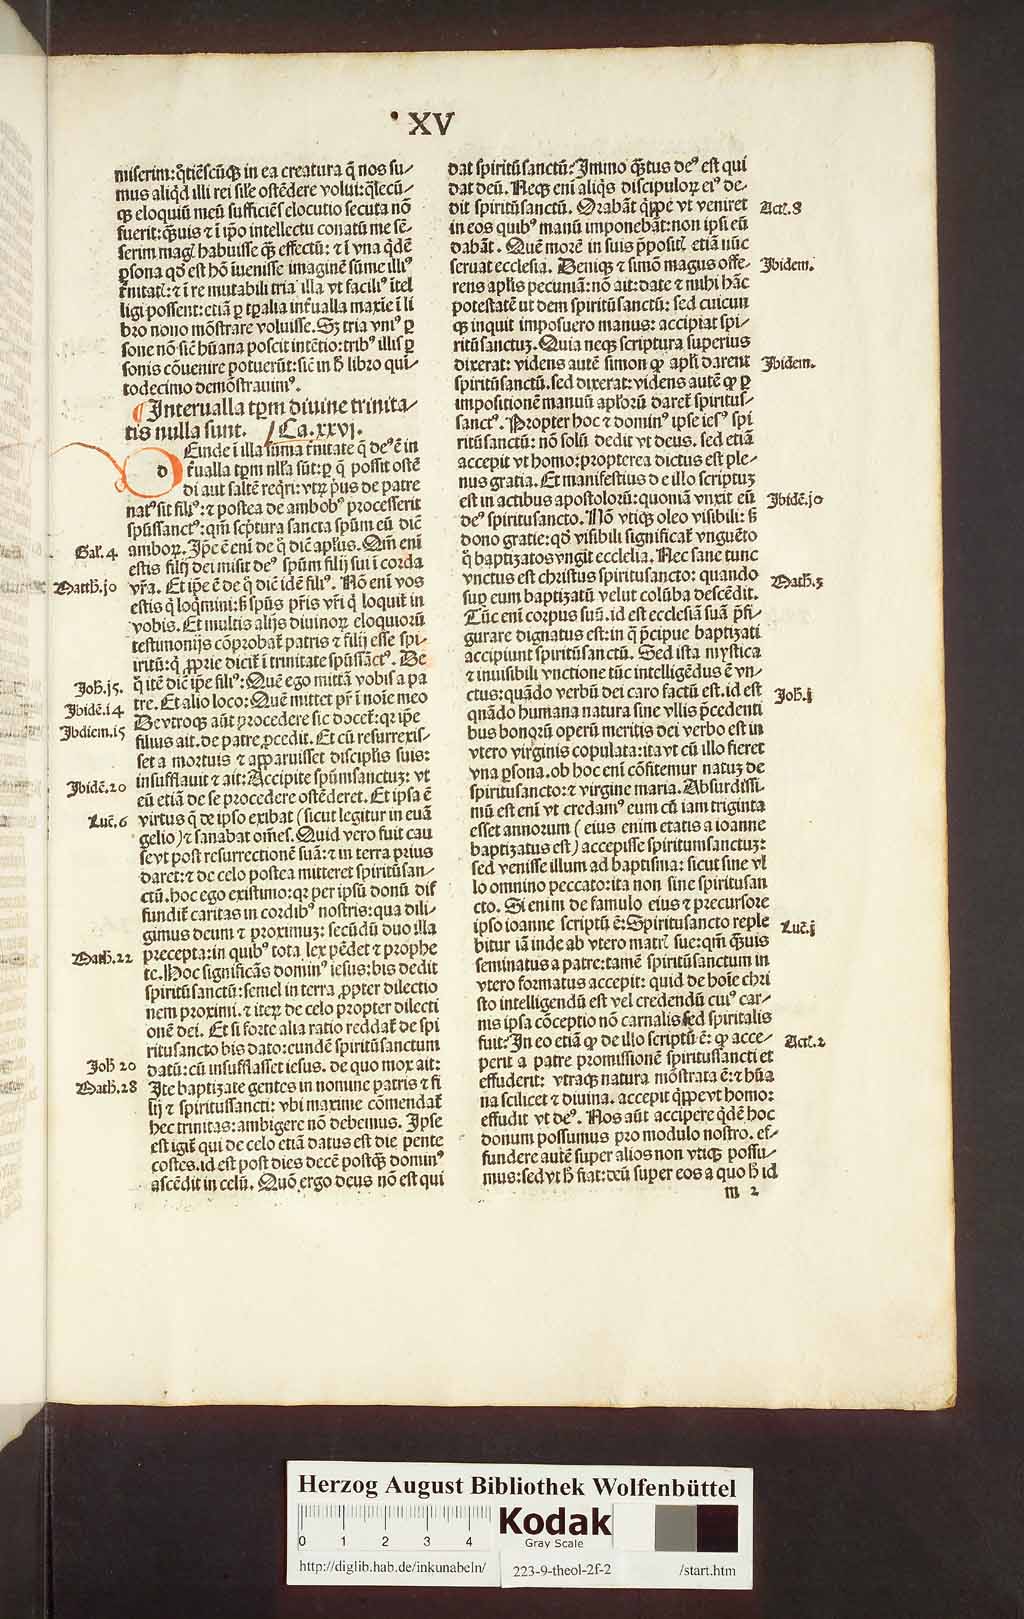 XV
miserim: q̄tiēscūq̨ in ea creatura q̄ nos su/
mus aliq̇d illi rei sil̄e ostēdere volui: q̄lecū/
q̨ eloquiū meū sufficiēs elocutio secuta nō
fuerit: q̄uis ⁊ ī ip̄o intellectu conatū me sē/
serim magꝭ habuisse q̄ꝫ effectū: ⁊ ī vna q̇dē
ꝑsona qḋ est hō īuenisse imaginē sūme illiꝰ
t̄nitatꝭ: ⁊ ī re mutabili tria illa vt faciliꝰ ītel
ligi possent: etiā ꝑ tꝑalia inťualla maxīe ī li
bro nono mōstrare voluisse. Sꝫ tria vniꝰ ꝑ
sone nō sic̄ hūana poscit intētio: tribꝰ illis ꝑ
sonis cōuenire potuerūt: sic̄ in h̄ libro qui/
todecimo demōstrauimꝰ.
Interualla tꝑm diuine trinita/
tis nulla sunt. Ca.xxvi.
dEinde ī illa sūma t̄nitate q̄ deꝰ ē īn
ťualla tꝑm nl̄la sūt: ꝑ q̄ possit ostē
di aut saltē reqͥri: vtꝝ pͥus de patre
natꝰ sit filiꝰ: ⁊ postea de ambobꝰ processerit
spūssanctꝰ: qm̄ scͥptura sancta spūm eū dic̄
amboꝝ. Ip̄e ē enī de q̊ dic̄ apl̄us. Qm̄ enī
estis filij dei misit deꝰ spūm filij sui ī corda
vr̄a. Et ip̄e ē de q̊ dic̄ idē filiꝰ. Nō enī vos
estis q̇ loqͥmini: s̄ spūs pr̄is vr̄i q̇ loquiť in
vobis. Et multis alijs diuinoꝝ eloquiorū
testimonijs cōprobať patris ⁊ filij esse spi/
ritū: q̇ ꝓprie diciť ī trinitate spūssāctꝰ. De
q̊ itē dic̄ ip̄e filiꝰ: Quē ego mittā vobis a pa
tre. Et alio loco: Quē mittet pr̄ ī noīe meo
De vtroq̨ aūt procedere sic doceť: qꝛ ip̄e
filius ait. de patre ꝓcedit. Et cū resurrexis/
set a mortuis ⁊ apparuisset discipl̄is suis:
insufflauit ⁊ ait: Accipite spūmsanctuꝫ: vt
eū etiā de se procedere ostēderet. Et ipsa ē
virtus q̄ de ipso exibat (sicut legitur in euā
gelio) ⁊ sanabat om̄es. Quid vero fuit cau
se vt post resurrectionē suā: ⁊ in terra prius
daret: ⁊ de celo postea mitteret spiritū san/
ctū. hoc ego existimo: qꝛ per ipsū donū dif
fundiť caritas in cordibꝰ nostris: qua dili/
gimus deum ⁊ proximuꝫ: secūdū duo illa
precepta: in quibꝰ tota lex pēdet ⁊ prophe
te. Hoc significās dominꝰ iesus: bis dedit
spiritū sanctū: semel in terra ꝓpter dilectio
nem proximi. ⁊ iteꝝ de celo propter dilecti
onē dei. Et si forte alia ratio reddať de spi
ritusancto bis dato: eundē spiritū sanctum
datū: cū insufflasset iesus. de quo mox ait:
Ite baptizate gentes in nomine patris ⁊ fi
lij ⁊ spiritussancti: vbi maxime cōmendať
hec trinitas: ambigere nō debemus. Ipse
est igiť qui de celo etiā datus est die pente
costes. id est post dies decē postq̄ꝫ dominꝰ
ascēdit in celū. Quō ergo deus nō est qui
Gal̄. 4
Matth. j0
Joh. j5.
Ibidē. i4
Ibdiem. i5
Ibidē. 20
Luc̄. 6
Math. 22
Joh 20
Math. 28
dat spiritū sanctū? Immo q̄ꝫtus deꝰ est qui
dat deū. Neq̨ enī aliq̇s discipuloꝝ eiꝰ de/
dit spiritū sanctū. Orabāt q̇ppe vt veniret
in eos quibꝰ manū imponebāt: non ipsi eū
dabāt. Quē morē in suis p̄positꝭ etiā nūc
seruat ecclesia. Deniq̨ ⁊ simō magus offe/
rens apl̄is pecuniā: nō ait: date ⁊ mihi hāc
potestatē vt dem spiritū sanctū: sed cuicun
q̨ inquit imposuero manus: accipiat spi/
ritū sanctuꝫ. Quia neq̨ scriptura superius
dixerat: videns autē simon ꝙ apl̄i darent
spiritū sanctū. sed dixerat: videns autē ꝙ ꝑ
impositionē manuū apl̄orū dareť spiritus/
sanctꝰ. Propter hoc ⁊ dominꝰ ipse iesꝰ spi
ritū sanctū: nō solū dedit vt deus. sed etiā
accepit vt homo: propterea dictus est ple/
nus gratia. Et manifestius de illo scriptuꝫ
est in actibus apostolorū: quoniā vnxit eū
deꝰ spiritusancto. Nō vtiq̨ oleo visibili: s̄
dono gratie: qḋ visibili significať vnguēto
q̊ baptizatos vngit ecclesia. Nec sane tunc
vnctus est christus spiritusancto: quando
suꝑ eum baptizatū velut colūba descēdit.
Tūc enī corpus suū. id est ecclesiā suā p̄fi/
gurare dignatus est: in q̄ p̄cipue baptizati
accipiunt spiritū sanctū. Sed ista mystica
⁊ inuisibili vnctione tūc intelligēdus ē vn/
ctus: quādo verbū dei caro factū est. id est
quādo humana natura sine vllis p̄cedenti
bus bonorū operū meritis dei verbo est in
vtero virginis copulata: ita vt cū illo fieret
vna ꝑsona. ob hoc enī cōfitemur natuꝫ de
spiritusancto: ⁊ virgine maria. Absurdissi
mū est enī vt credamꝰ eum cū iam triginta
esset annorum (eius enim etatis a ioanne
baptizatus est) accepisse spiritumsanctuꝫ:
sed venisse illum ad baptisma: sicut sine vl
lo omnino peccato: ita non sine spiritusan
cto. Si enim de famulo eius ⁊ precursore
ipso ioanne scriptū ē: Spiritusancto reple
bitur iā inde ab vtero matrꝭ sue: qm̄ q̄uis
seminatus a patre: tamē spiritū sanctum in
vtero formatus accepit: quid de hoīe chri
sto intelligendū est vel credendū cuiꝰ car/
nis ipsa cōceptio nō carnalis sed spiritalis
fuit? In eo etiā ꝙ de illo scriptū ē: ꝙ acce/
perit a patre promissionē spiritussancti et
effuderit: vtraq̨ natura mōstrata ē: ⁊ hūa
na scilicet ⁊ diuina. accepit q̇ppe vt homo:
effudit vt deꝰ. Nos aūt accipere q̇dē hoc
donum possumus pro modulo nostro. ef/
fundere autē super alios non vtiq̨ possu/
mus: sed vt h̄ fiat: deū super eos a quo h̄ id
m 2
Actꝭ. 8
Ibidem.
Ibidem.
Ibidē. j0
Math. 3
Joh. j
Luc̄. j
Actꝭ. 2
Herzog August Bibliothek Wolfenbüttel
0 1 2 3 4
Kodak
Gray Scale
http://diglib.hab.de/inkunabeln/
223-9-theol-2f-2
/start.htm